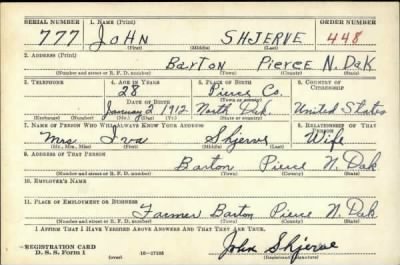 SERIAL NUMBER 1. NAME (Print) ORDER NUMBER
777 JOHN SHJERVE 448
(First) (Middle) (Last)
2. ADDRESS (Print)
Barton Pierce N. Dak
(Number and street or R. F. D. number) (Town) (County) (State)
3. TELEPHONE 4. AGE IN YEARS 5. PLACE OF BIRTH 6. COUNTRY OF CITIZENSHIP
28 Pierce Co.
DATE OF BIRTH (Town or county)
January 2 1912 North Dak. United States
(Exchange) (Number) (Mo.) (Day) (Yr.) (State or country)
7. NAME OF PERSON WHO WILL ALWAYS KNOW YOUR ADDRESS 8. RELATIONSHIP OF THAT PERSON
Mrs Iva Shjerve Wife
(Mr., Mrs., Miss) (First) (Middle) (Last)
9. ADDRESS OF THAT PERSON
Barton Pierce N. Dak
(Number and street or R. F. D. number) (Town) (County) (State)
10. EMPLOYER'S NAME
11. PLACE OF EMPLOYMENT OR BUSINESS
Farmer Barton Pierce N. Dak
(Number and street or R. F. D. number) (Town) (County) (State)
I AFFIRM THAT I HAVE VERIFIED ABOVE ANSWERS AND THAT THEY ARE TRUE.
REGISTRATION CARD
D. S. S. Form 1 (over) John Shjerve